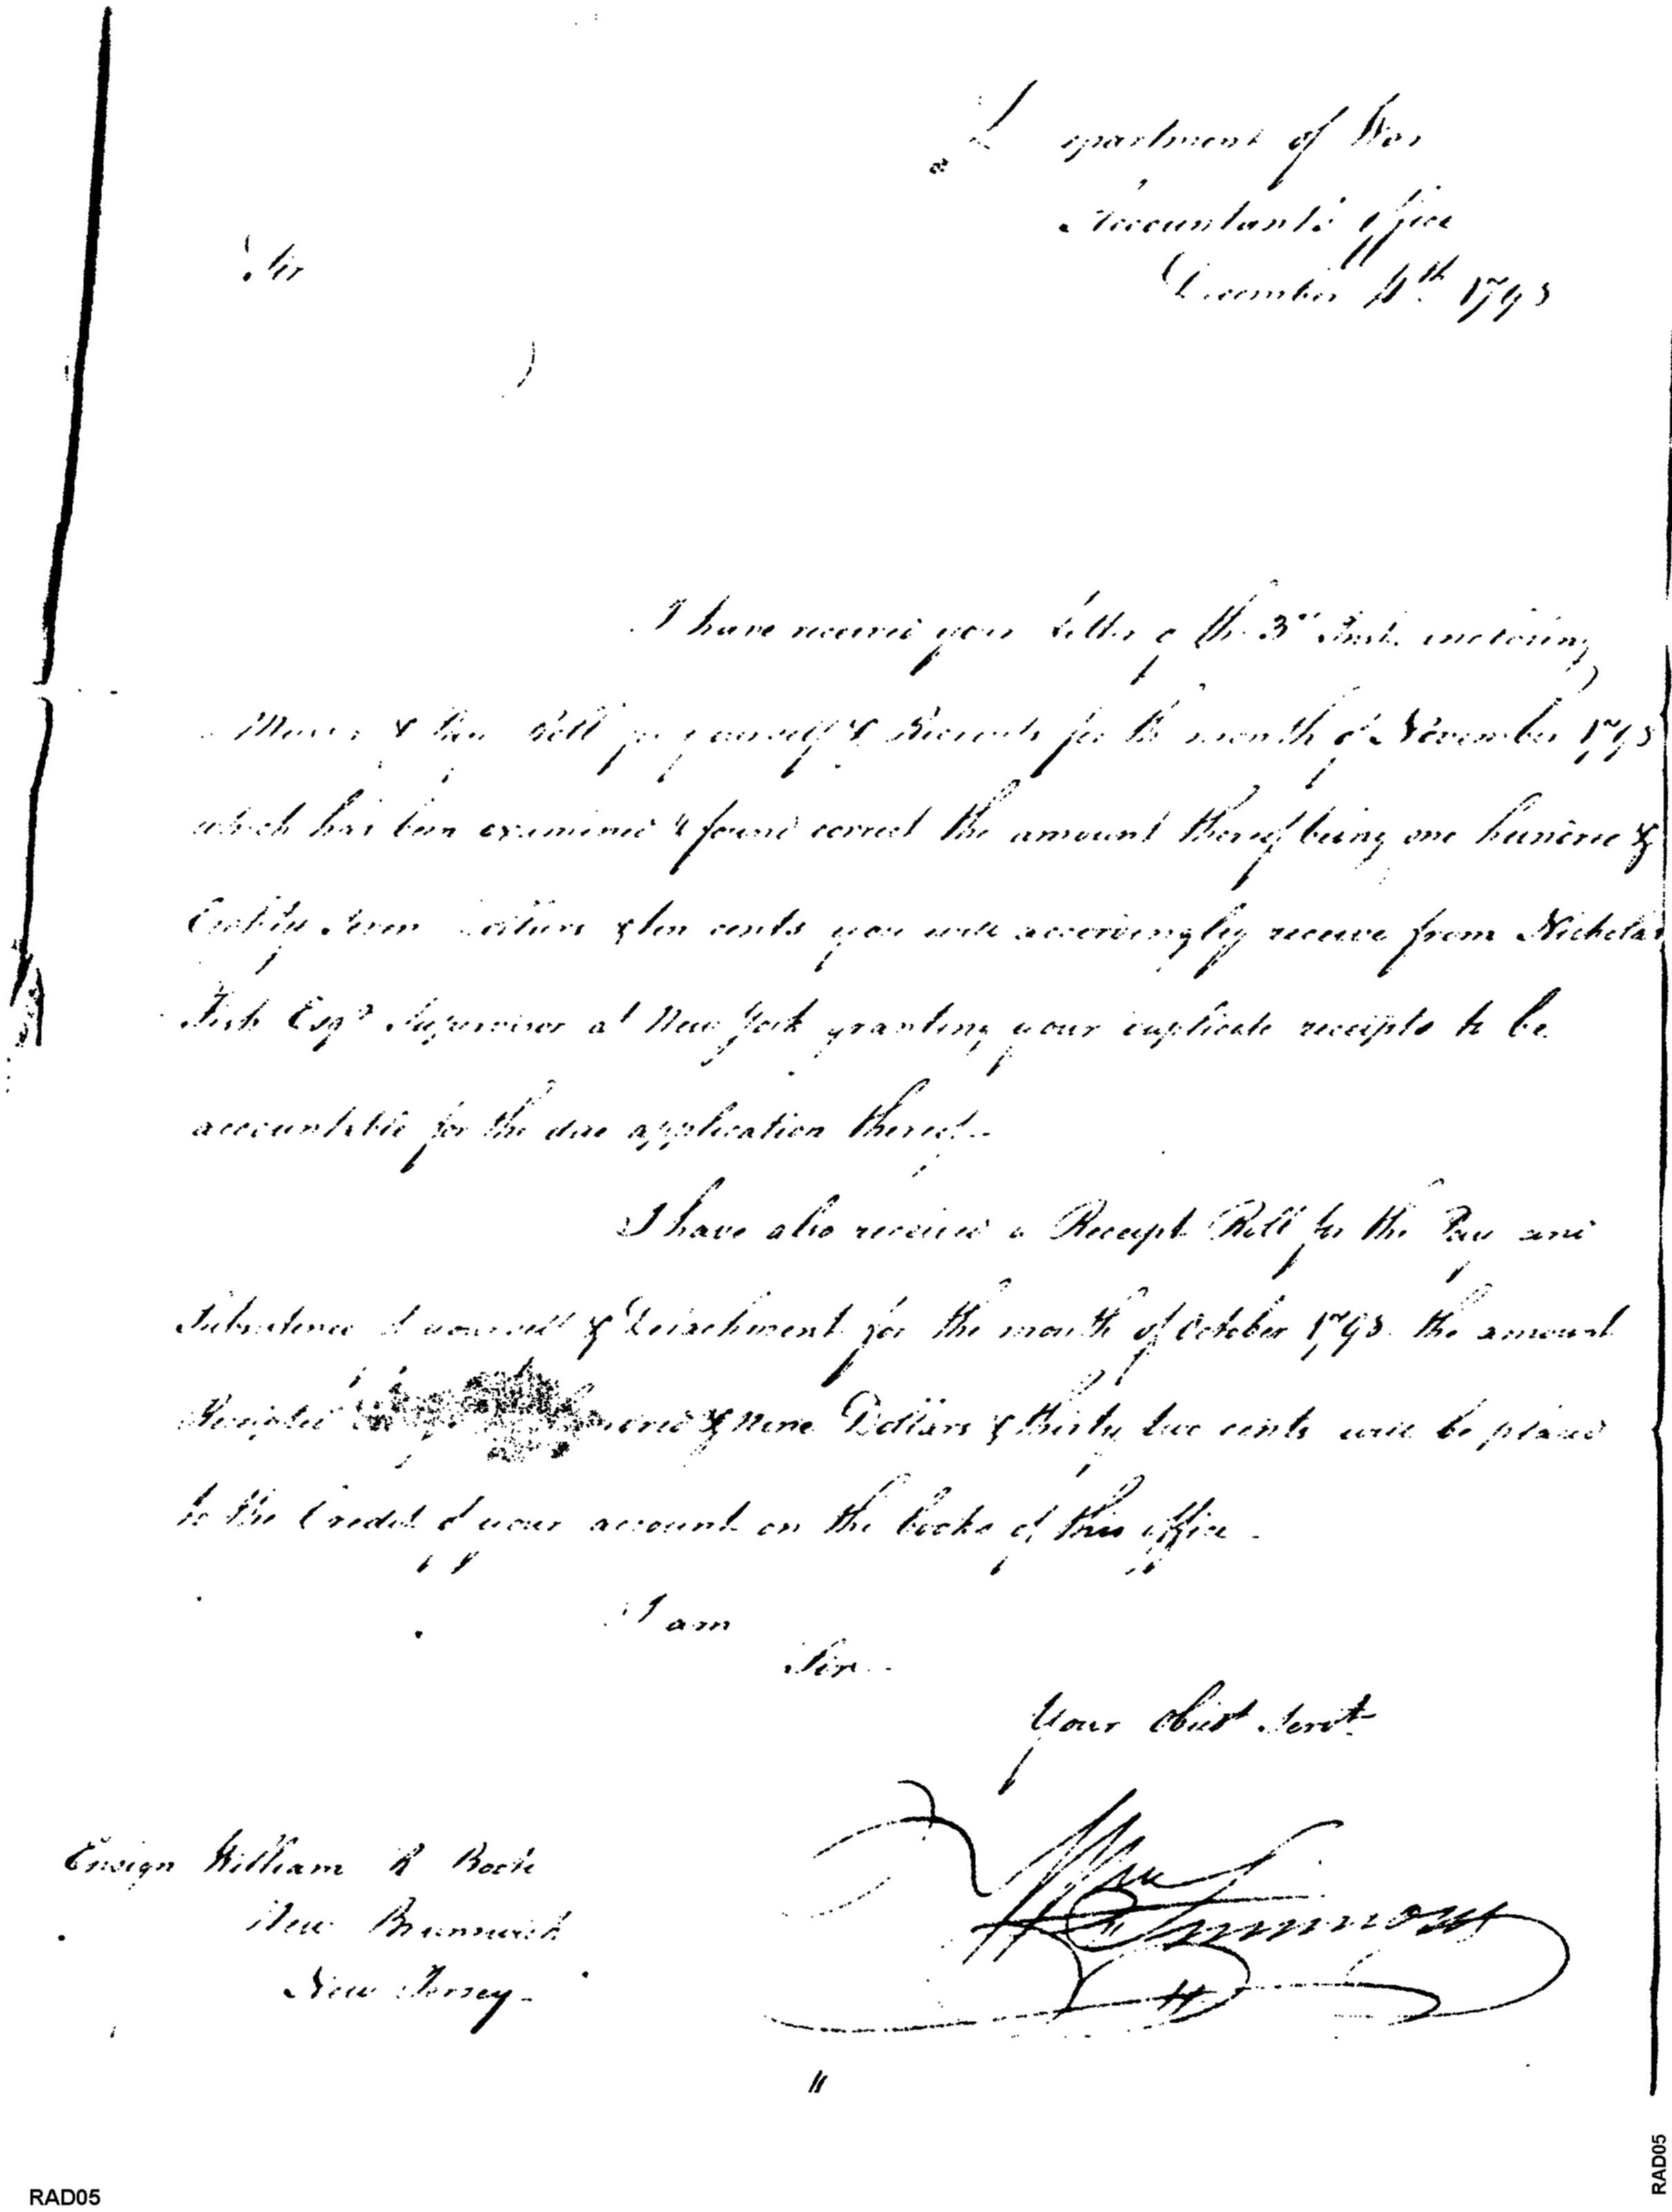 Department of War
Accountants Office
Sir
December 4th 1798
I have received your letter of the 3rd Inst. inclosing
Muster & Pay Roll for yourself & Recruits for the month of November 1798
which has been examined & found correct the amount thereof being one hundred &
Eighty seven dollars & ten cents you will accordingly receive from Nicholas
Fish Esqr Supervisor at New York granting your duplicate receipts to be
accountable for the due application thereof—
I have also received a Receipt Roll for the Pay and
Subsistence of yourself & Detachment for the month of October 1798 the amount
Receipted hundred & nine Dollars & thirty two cents will be placed
to the Credit of your account on the books of this office—
I am
Sir
Your Obedt Servt
Wm Simmons
Ensign William R Boote
New Brunswick
New Jersey—
RAD05
RAD05